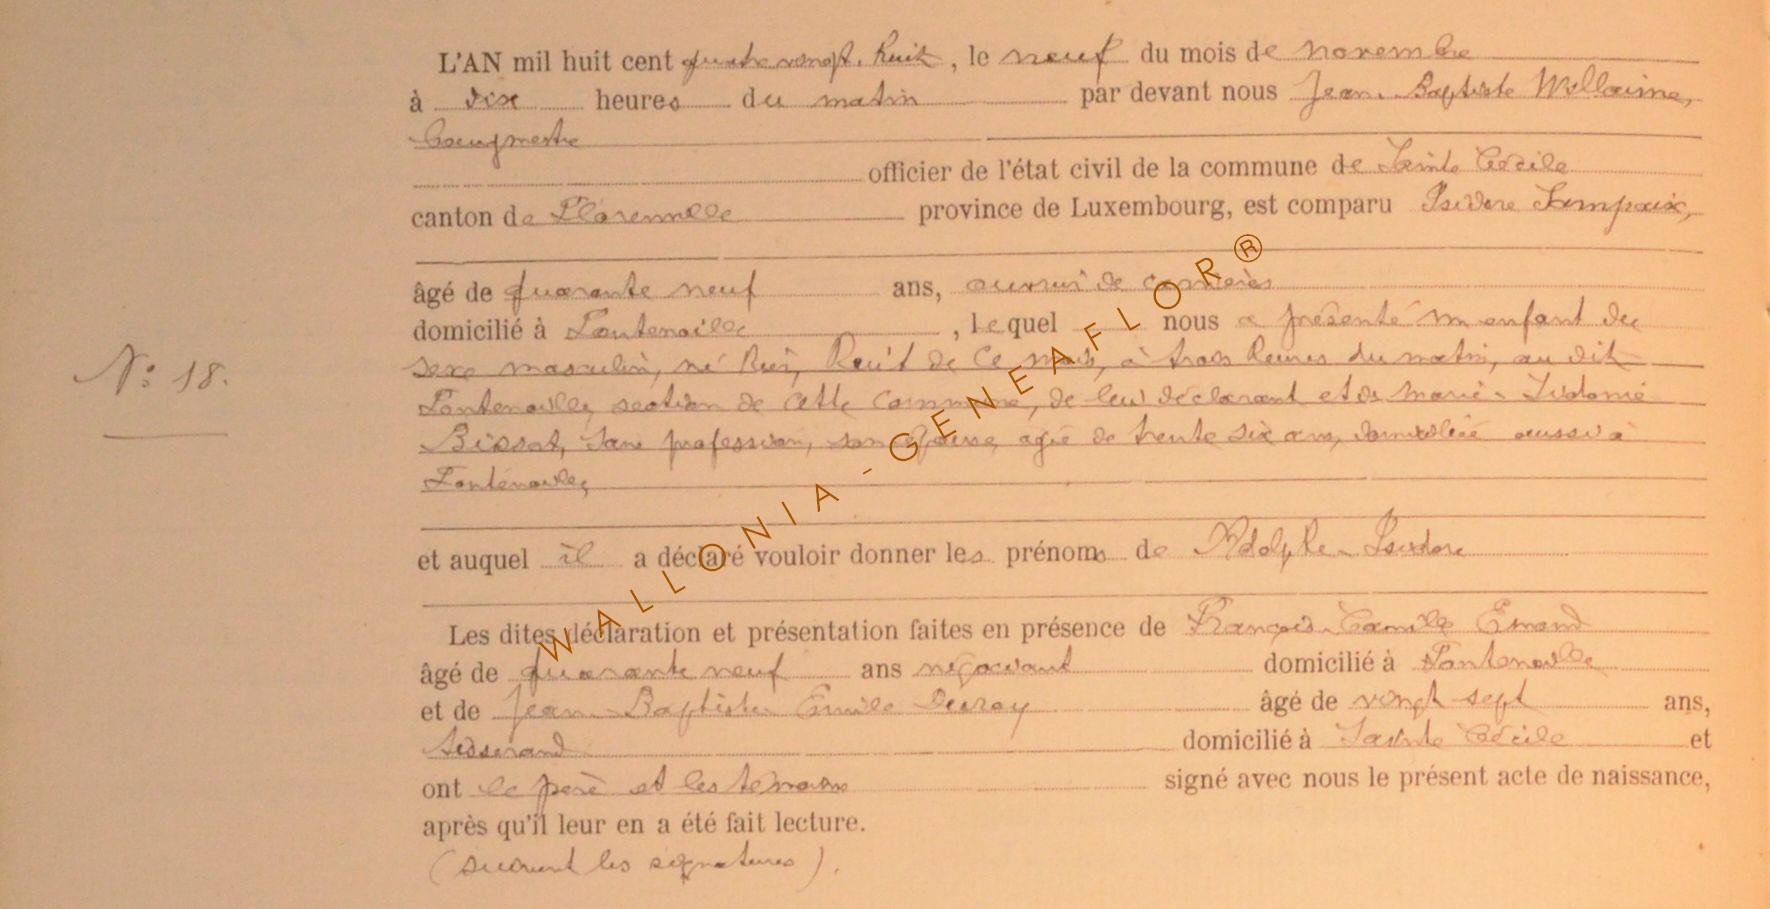 L'AN mil huit cent quatre vingt. huit, le neuf du mois de novembre
à dix heures du matin par devant nous Jean-Baptiste Willaime,
bourgmestre
officier de l'état civil de la commune de Sainte Cécile
canton de Florenville province de Luxembourg, est comparu Isidore Sampaix,
âgé de quarante neuf ans, ouvrier de carrières
domicilié à Fontenoille, lequel nous a présenté un enfant du
N° 18.
sexe masculin, né hier, huit de ce mois, à trois heures du matin, au dit
Fontenoille, section de cette commune, de lui déclarant et de Marie-
Bissot, sans profession, son épouse, agée de trente six ans, domiciliée aussi à
Fontenoille,
et auquel il a déclaré vouloir donner les prénoms de Adolphe-Isidore
Les dites déclaration et présentation faites en présence de François-Camille
âgé de quarante neuf ans négociant domicilié à Fontenoille
et de Jean-Baptiste Emile âgé de vingt sept ans,
tisserand domicilié à Sainte Cécile et
ont le père et les témoins signé avec nous le présent acte de naissance,
après qu'il leur en a été fait lecture.
(suivent les signatures).
WALLONIA-GENEAFLOR®